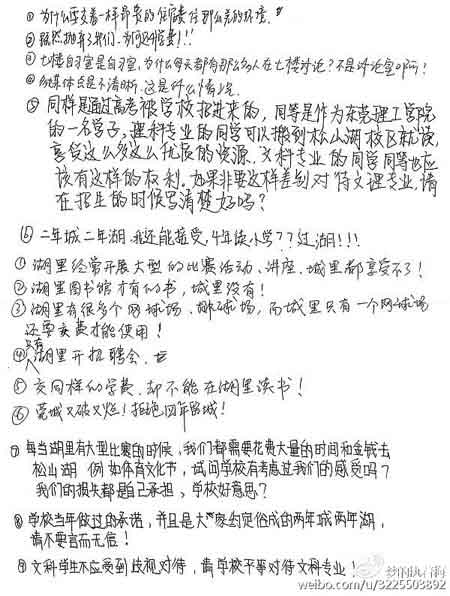 ① 为什么要交着一样昂贵的住宿费住那么差的环境。
② 既然抛弃了我们,
③ 七楼自习室是自习室,为什么每天都有那么多人在七楼讨论?不是讨论室
④ 多媒体总是不清晰,这是什么情况。
⑤ 同样是通过高考被学校招进来的,同等是作为东莞理工学院
的一名学子,理科专业的同学可以搬到松山湖校区就读,
享受这么多这么优质的资源,文科专业的同学同等也应
该有这样的权利。如果非要这样差别对待文理专业,请
在招生的时候写清楚好吗?
⑥ 二年城二年湖,我还能接受,4年读小学??过湖!!!
① 湖里经常开展大型的比赛活动、讲座,城里都享受不了!
② 湖里图书馆才有的书,城里没有!
③ 湖里有很多个网球场、排球场,而城里只有一个网球场
还要交费才能使用!
④ 只有湖里开招聘会。
⑤ 交同样的学费,却不能在湖里读书!
⑥ 莞城又破又烂!拒绝四年留城!
⑦ 每当湖里有大型比赛的时候,我们都需要花费大量的时间和金钱去
松山湖 例如体育文化节,试问学校有考虑过我们的感受吗?
我们的损失都是自己承担,学校好意思?
⑧ 学校当年做过的承诺,并且是大家约定俗成的两年城两年湖,
请不要言而无信!
⑨ 文科学生不应受到歧视对待,请学校平等对待文科专业!
weibo.com/u/3225503892